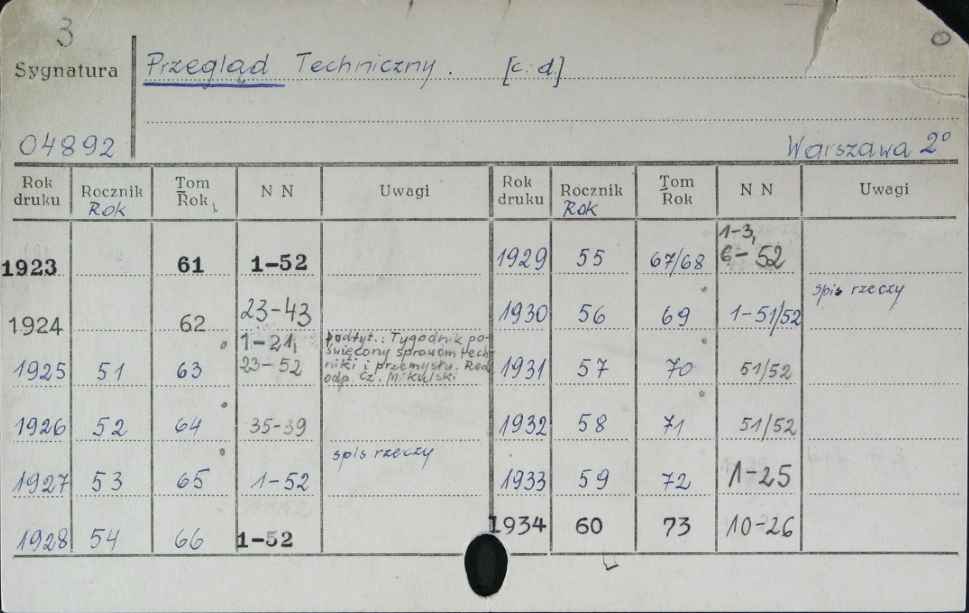 3
Sygnatura Przegląd Techniczny. [c. d.]
04892 Warszawa 2°
Rok druku Rocznik Rok Tom Rok N N Uwagi
1923 61 1-52
1924 62 23-43
1925 51 63 1-21, 23-52 podtyt.: Tygodnik poświęcony sprawom techniki i przemysłu. Red. odp. Cz. Mikulski
1926 52 64 35-39
1927 53 65 1-52 spis rzeczy
1928 54 66 1-52
Rok druku Rocznik Rok Tom Rok N N Uwagi
1929 55 67/68 1-3, 6-52
1930 56 69 1-51/52 spis rzeczy
1931 57 70 51/52
1932 58 71 51/52
1933 59 72 1-25
1934 60 73 10-26